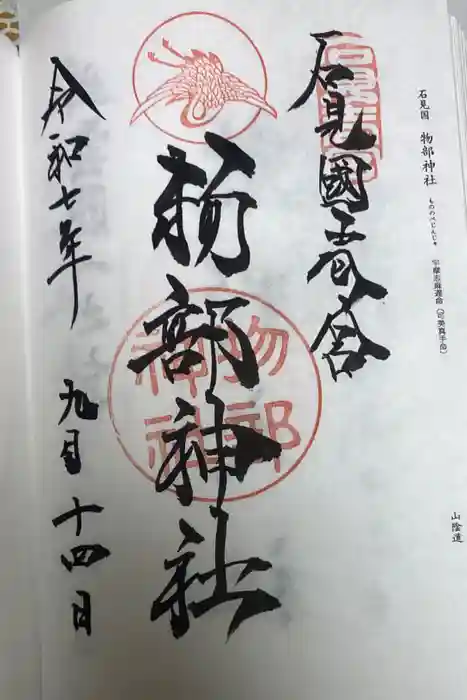 石見国 物部神社 もののべじんじゃ 宇摩志麻遅命(可美真手命)
山陰道
石見國一之宮
物部神社
物部
神社
令和七年 九月十四日